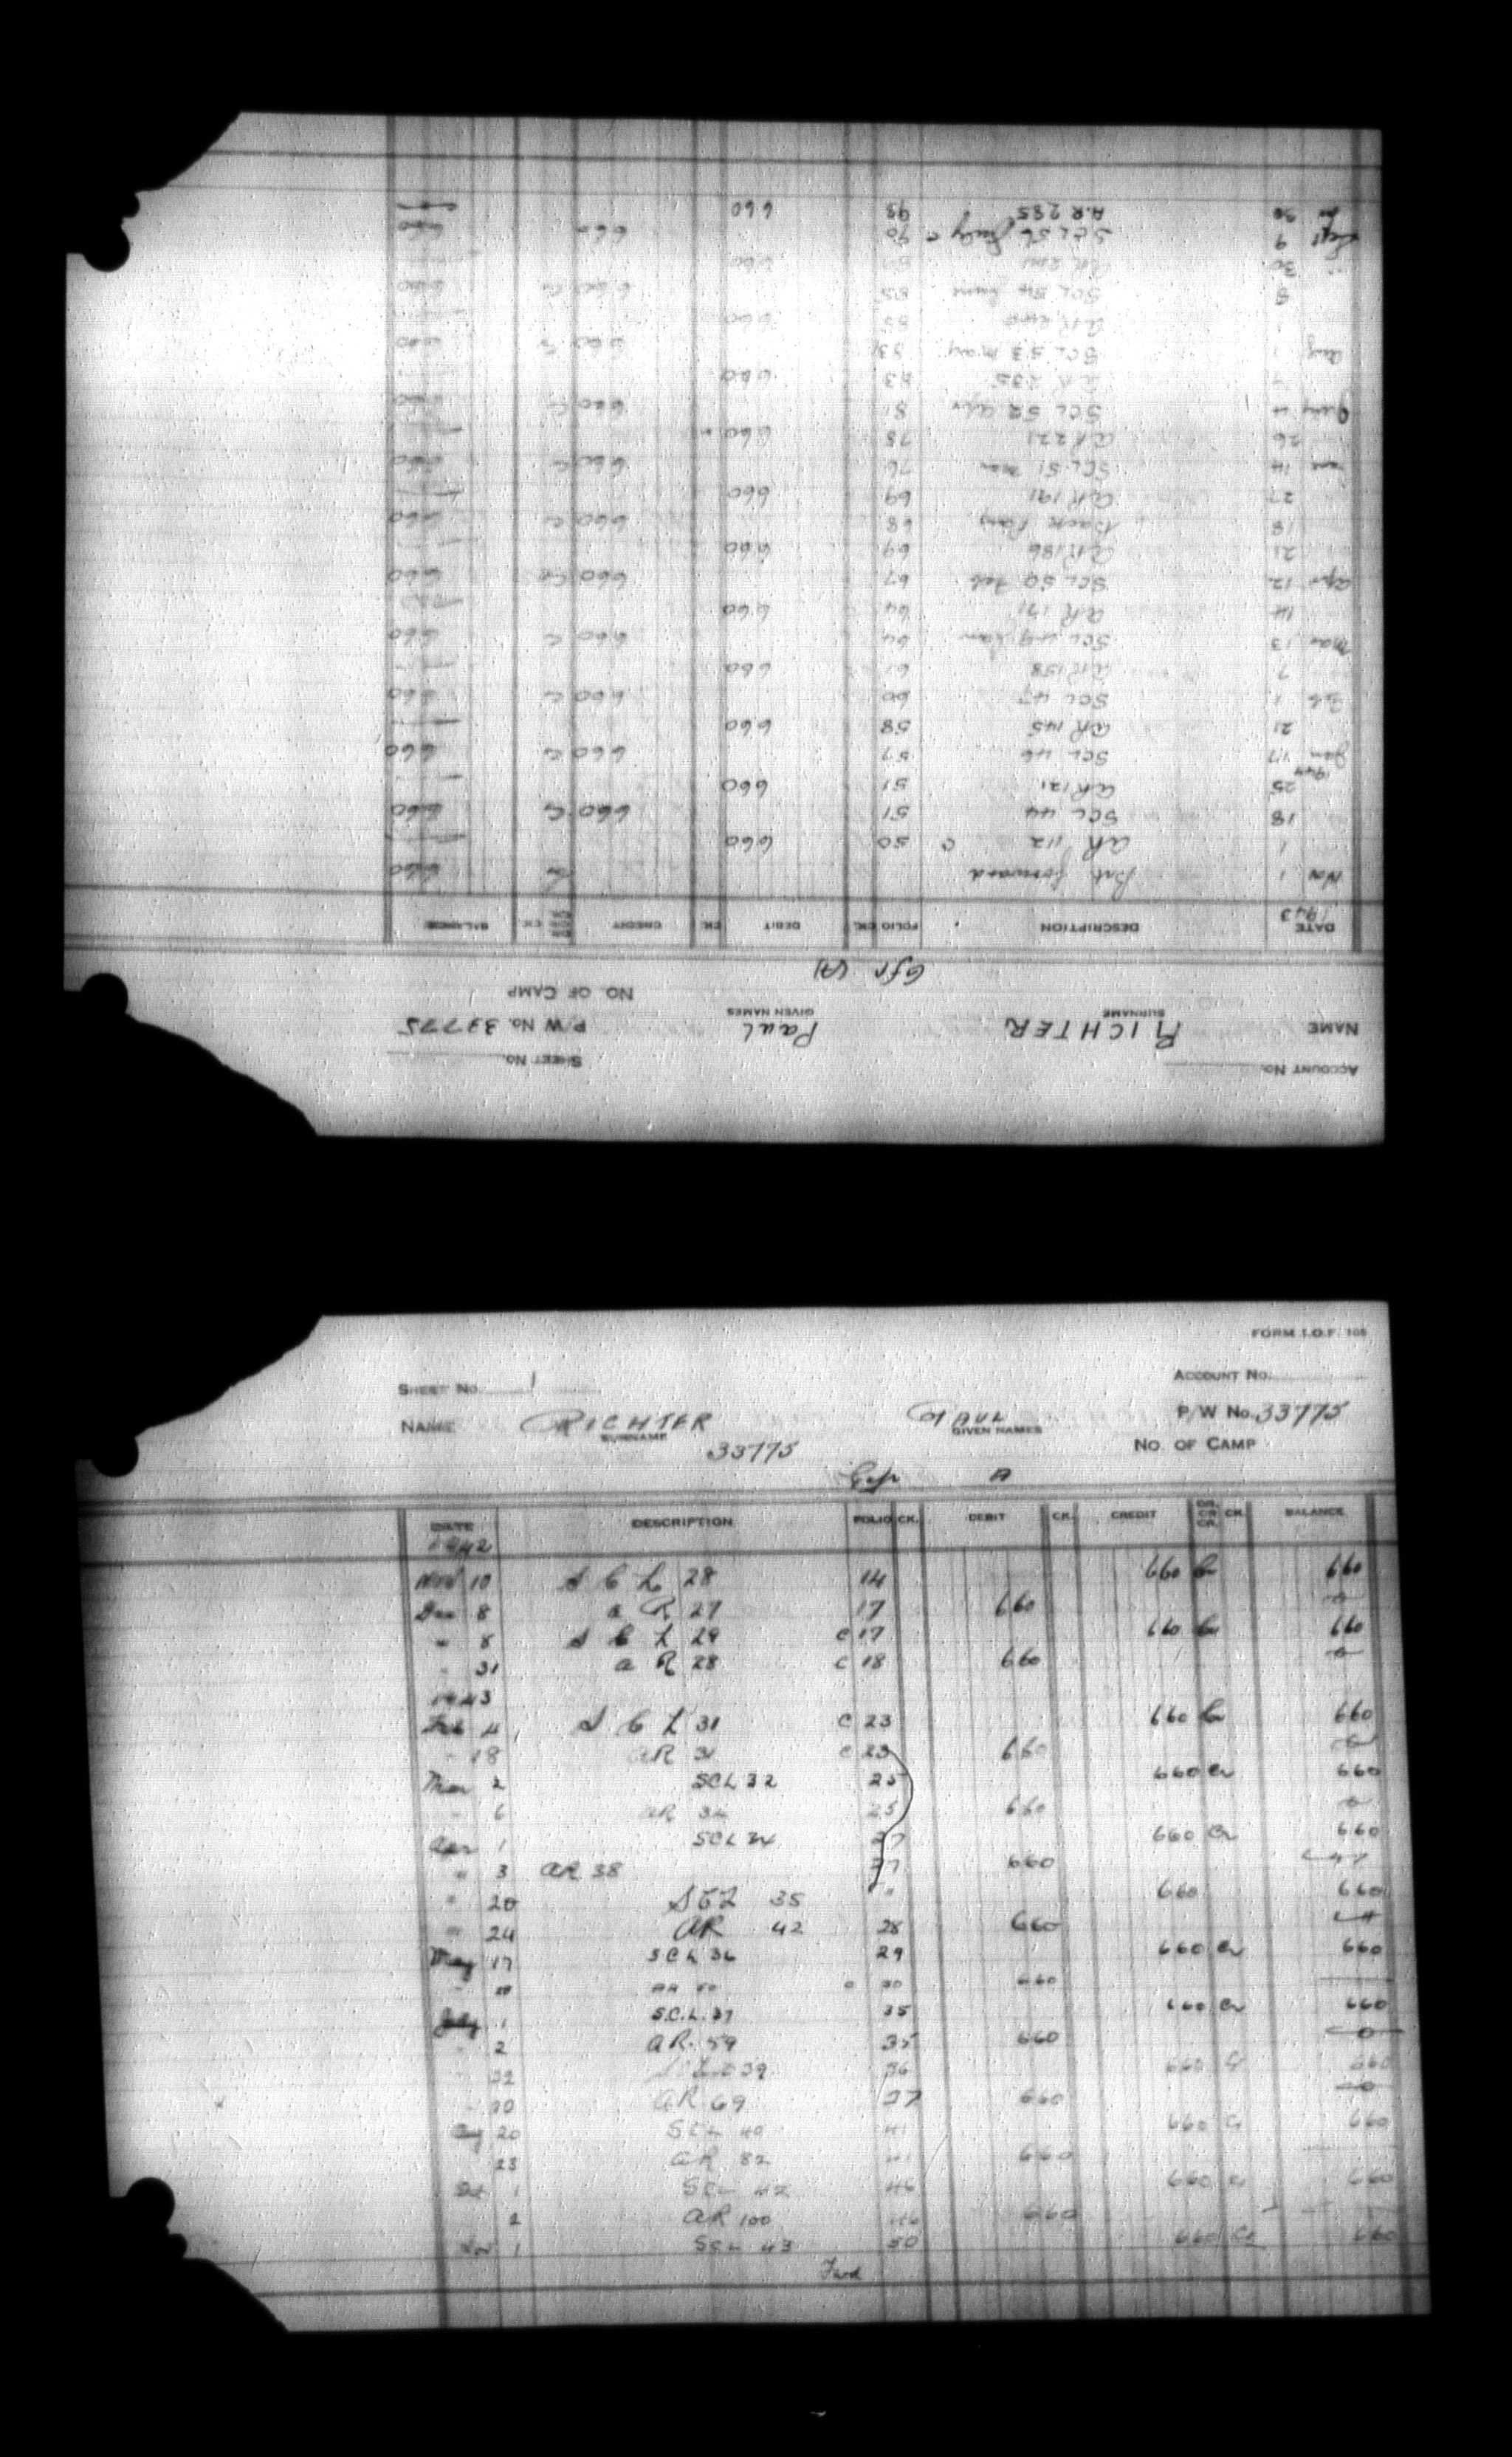 ACCOUNT NO. SHEET NO.
NAME RICHTER Paul P/W No. 33775
SURNAME GIVEN NAMES
NO. OF CAMP
Gfr (A)
DATE DESCRIPTION FOLIO CK. DEBIT CK. CREDIT DR. OR CR. CK. BALANCE
1943
Nov 1 Brt forward Cr 660
1 AR 112 C 50 660 —
18 SCL 44 51 660 Cr 660
25 AR 121 51 660 —
1944
Jan 17 SCL 46 57 660 Cr 660
21 AR 145 58 660 —
Feb 1 SCL 47 60 660 Cr 660
7 AR 158 61 660 —
Mar 13 SCL 49 Jan 64 660 Cr 660
14 AR 171 64 660 —
Apr 12 SCL 50 Feb 67 660 Cr 660
21 AR 186 69 660 —
18 Back Pay 68 660 Cr 660
27 AR 191 69 660 —
June 14 SCL 51 Mar 76 660 Cr 660
26 AR 221 78 660 —
July 4 SCL 52 Apr 81 660 Cr 660
AR 235 83 660
Aug 1 SCL 53 May 83 660 Cr 660
AR 85 660
8 SCL 54 June 85 660 Cr 660
30 AR 660
Sept 9 SCL 56 July C 90 660 660
30 A.R 285 93 660
FORM I.O.F. 105
SHEET NO. 1 ACCOUNT NO.
NAME RICHTER PAUL P/W No. 33775
SURNAME GIVEN NAMES
33775 NO. OF CAMP
Gfr A
DATE DESCRIPTION FOLIO CK. DEBIT CK. CREDIT DR. OR CR. CK. BALANCE
1942
Nov 10 S C L 28 14 660 Cr 660
Dec 8 A R 27 17 660 0
" 8 S C L 29 C 17 660 Cr 660
" 31 A R 28 C 18 660 0
1943
Feb 4 S C L 31 C 23 660 Cr 660
" 18 AR 31 C 23 660 0
Mar 2 SCL 32 25 660 Cr 660
" 6 AR 34 25 660 0
Apr 1 SCL 34 27 660 Cr 660
" 3 AR 38 27 660
" 20 SCL 35 " 660 660
" 24 AR 42 28 660
May 17 SCL 36 29 660 Cr 660
AR 50 C 30 660
July 1 S.C.L. 37 35 660 Cr 660
" 2 AR. 59 35 660 0
22 SCL 39 36 660 Cr 660
30 AR 69 37 660 0
Aug 20 SCL 40 41 660 Cr 660
23 AR 82 41 660
Oct 1 SCL 42 46 660 Cr 660
2 AR 100 46 660 —
Nov 1 SCL 43 50 660 Cr 660
Fwd